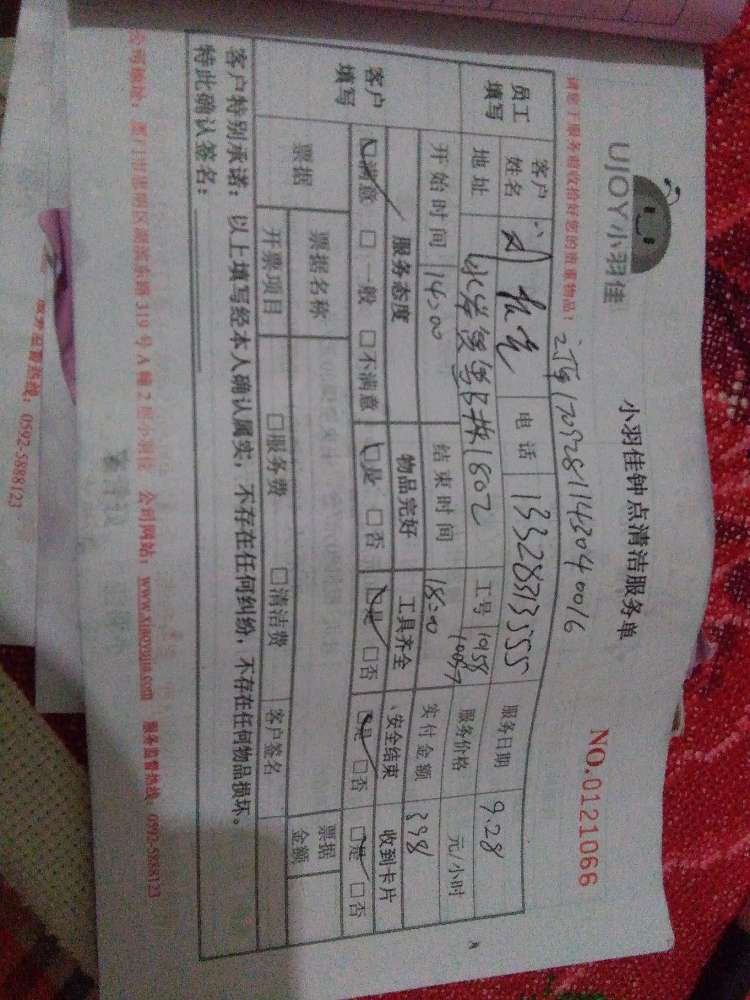 UJOY小羽佳
小羽佳钟点清洁服务单
NO.0121066
请您于服务验收恰好您的贵重物品！
员工填写
客户姓名
电话 13328313555
服务日期 9.28
地址
1802
工号 1058
服务价格 元/小时
开始时间 14:00
结束时间 18:00
实付金额 398
客户填写
服务态度 物品完好 工具齐全 安全结束 收到卡片
☑满意 □一般 □不满意 ☑是 □否 ☑是 □否 ☑是 □否 ☑是 □否
票据 票据名称 票据金额
开票项目 □服务费 □清洁费 客户签名
客户特别承诺：以上填写经本人确认属实，不存在任何纠纷，不存在任何物品损坏。
特此确认签名：
公司地址：厦门市思明区湖滨东路319号A幢2层小羽佳 公司网站：www.xiaoyujia.com 服务监督热线 0592-5888123
服务监督热线：0592-5888123